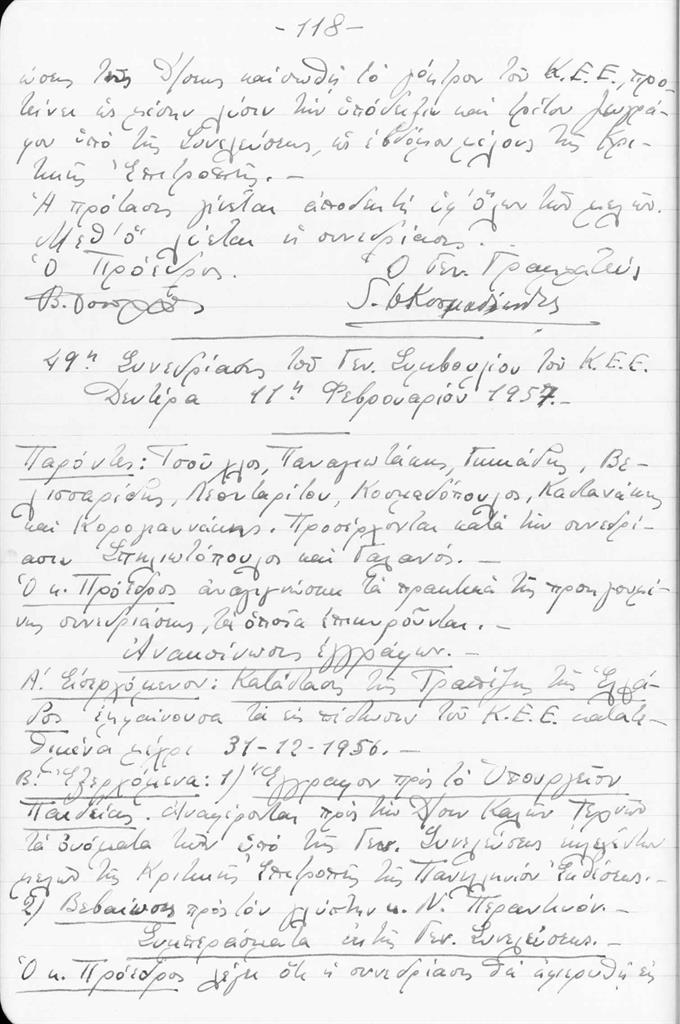 -118-
ώσεως τῆς θέσεως καὶ σωθῇ τὸ γόητρον τοῦ Κ.Ε.Ε., προ-
τείνει ὡς μέσην λύσιν τὴν ὑπόδειξιν καὶ τρίτου ζωγρά-
φου ὑπὸ τῆς Συνελεύσεως, ὡς ἑβδόμου μέλους τῆς Κρι-
τικῆς Ἐπιτροπῆς. -
Ἡ πρότασις γίνεται ἀποδεκτὴ ὑφ' ὅλων τῶν μελῶν.
Μεθ' ὅ λύεται ἡ συνεδρίασις.
Ὁ Πρόεδρος. Ὁ Γεν. Γραμματεύς
49η Συνεδρίασις τοῦ Γεν. Συμβουλίου τοῦ Κ.Ε.Ε.
Δευτέρα 11η Φεβρουαρίου 1957.-
Παρόντες: Τσοῦχλος, Παναγιωτάκης, Γικιάδης, Βε-
λισσαρίδης, Λεονταρίτου, Κοσμαδόπουλος, Καστανάκης
καὶ Κορογιαννάκης. Προσέρχονται κατὰ τὴν συνεδρί-
ασιν Σπηλιωτόπουλος καὶ Γαλανός. -
Ὁ κ. Πρόεδρος ἀναγιγνώσκει τὰ πρακτικὰ τῆς προηγουμέ-
νης συνεδριάσεως, τὰ ὁποῖα ἐπικυροῦνται. -
Ἀνακοίνωσις ἐγγράφων. -
Α'. Εἰσερχόμενον: Κατάστασις τῆς Τραπέζης τῆς Ἑλλά-
δος ἐμφαίνουσα τὰ εἰς πίστωσιν τοῦ Κ.Ε.Ε. κατατε-
θειμένα μέχρι 31-12-1956. -
Β'. Ἐξερχόμενα: 1) Ἔγγραφον πρὸς τὸ Ὑπουργεῖον
Παιδείας. Ἀναφέρονται πρὸς τὴν Δ/σιν Καλῶν Τεχνῶν
τὰ ὀνόματα τῶν ὑπὸ τῆς Γεν. Συνελεύσεως ἐκλεγέντων
μελῶν τῆς Κριτικῆς Ἐπιτροπῆς τῆς Πανελληνίου Ἐκθέσεως. -
2) Βεβαίωσις πρὸς τὸν γλύπτην κ. Ν. Περαντινόν. -
Συμπεράσματα ἐκ τῆς Γεν. Συνελεύσεως. -
Ὁ κ. Πρόεδρος λέγει ὅτι ἡ συνεδρίασις θὰ ἀφιερωθῇ εἰς